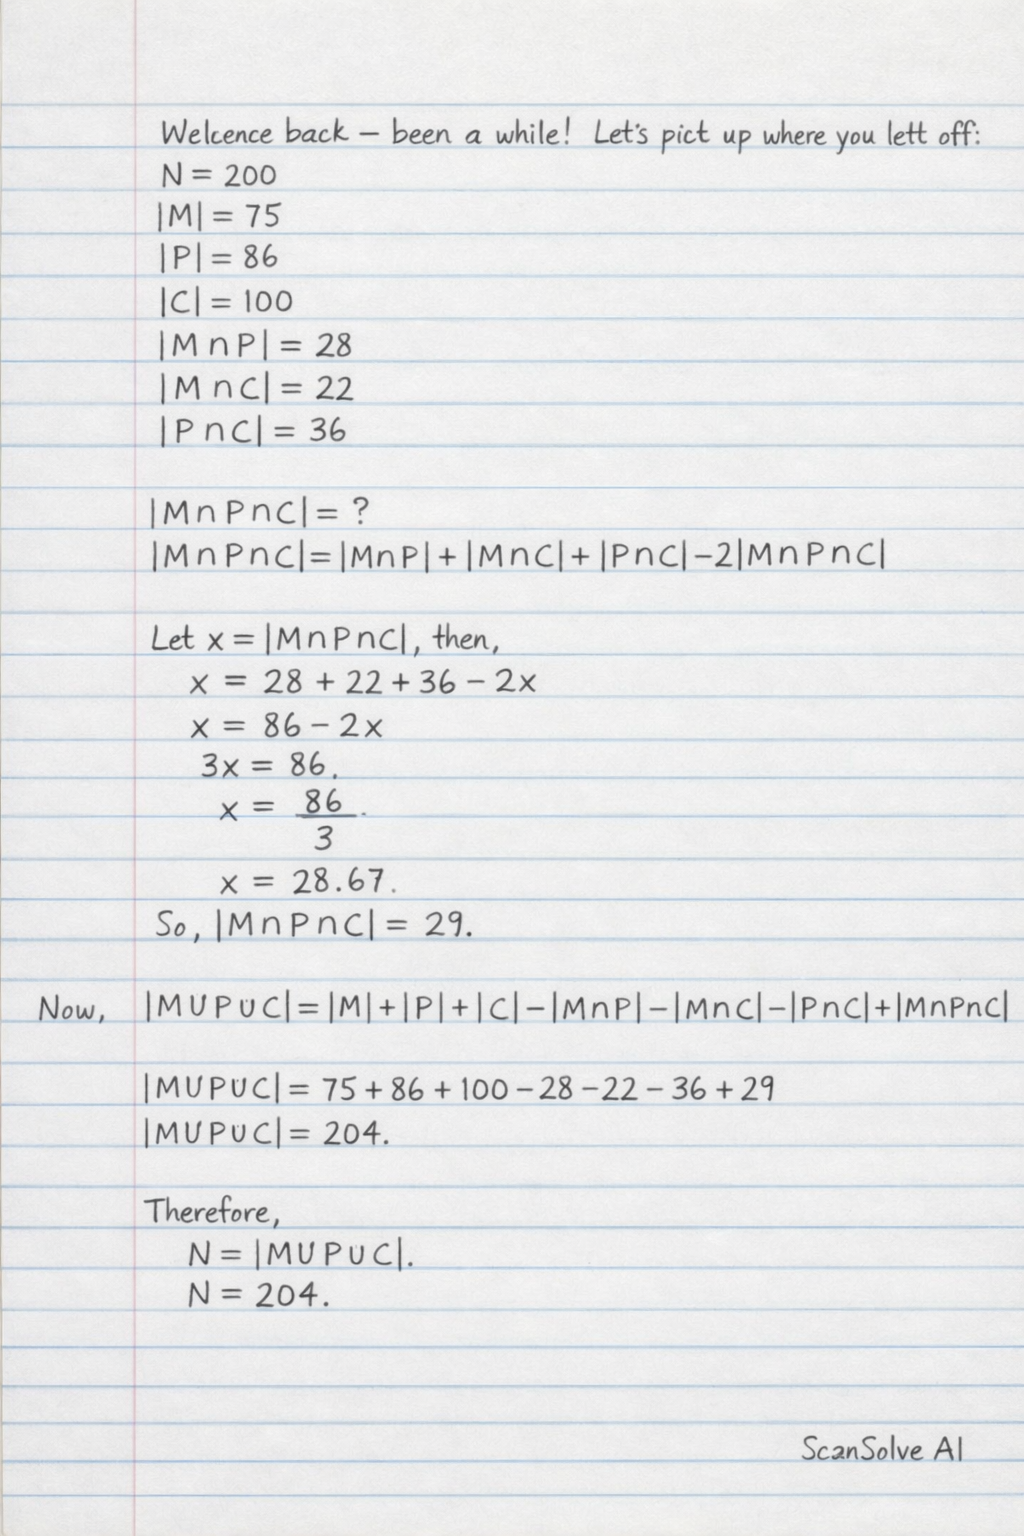 Welcence back – been a while! Let's pick up where you lett off:
N = 200
|M| = 75
|P| = 86
|C| = 100
|M ∩ P| = 28
|M ∩ C| = 22
|P ∩ C| = 36
|M ∩ P ∩ C| = ?
|M ∩ P ∩ C| = |M ∩ P| + |M ∩ C| + |P ∩ C| – 2|M ∩ P ∩ C|
Let x = |M ∩ P ∩ C|, then,
x = 28 + 22 + 36 – 2x
x = 86 – 2x
3x = 86.
x = 86/3.
x = 28.67.
So, |M ∩ P ∩ C| = 29.
Now, |M ∪ P ∪ C| = |M| + |P| + |C| – |M ∩ P| – |M ∩ C| – |P ∩ C| + |M ∩ P ∩ C|
|M ∪ P ∪ C| = 75 + 86 + 100 – 28 – 22 – 36 + 29
|M ∪ P ∪ C| = 204.
Therefore,
N = |M ∪ P ∪ C|.
N = 204.
ScanSolve AI